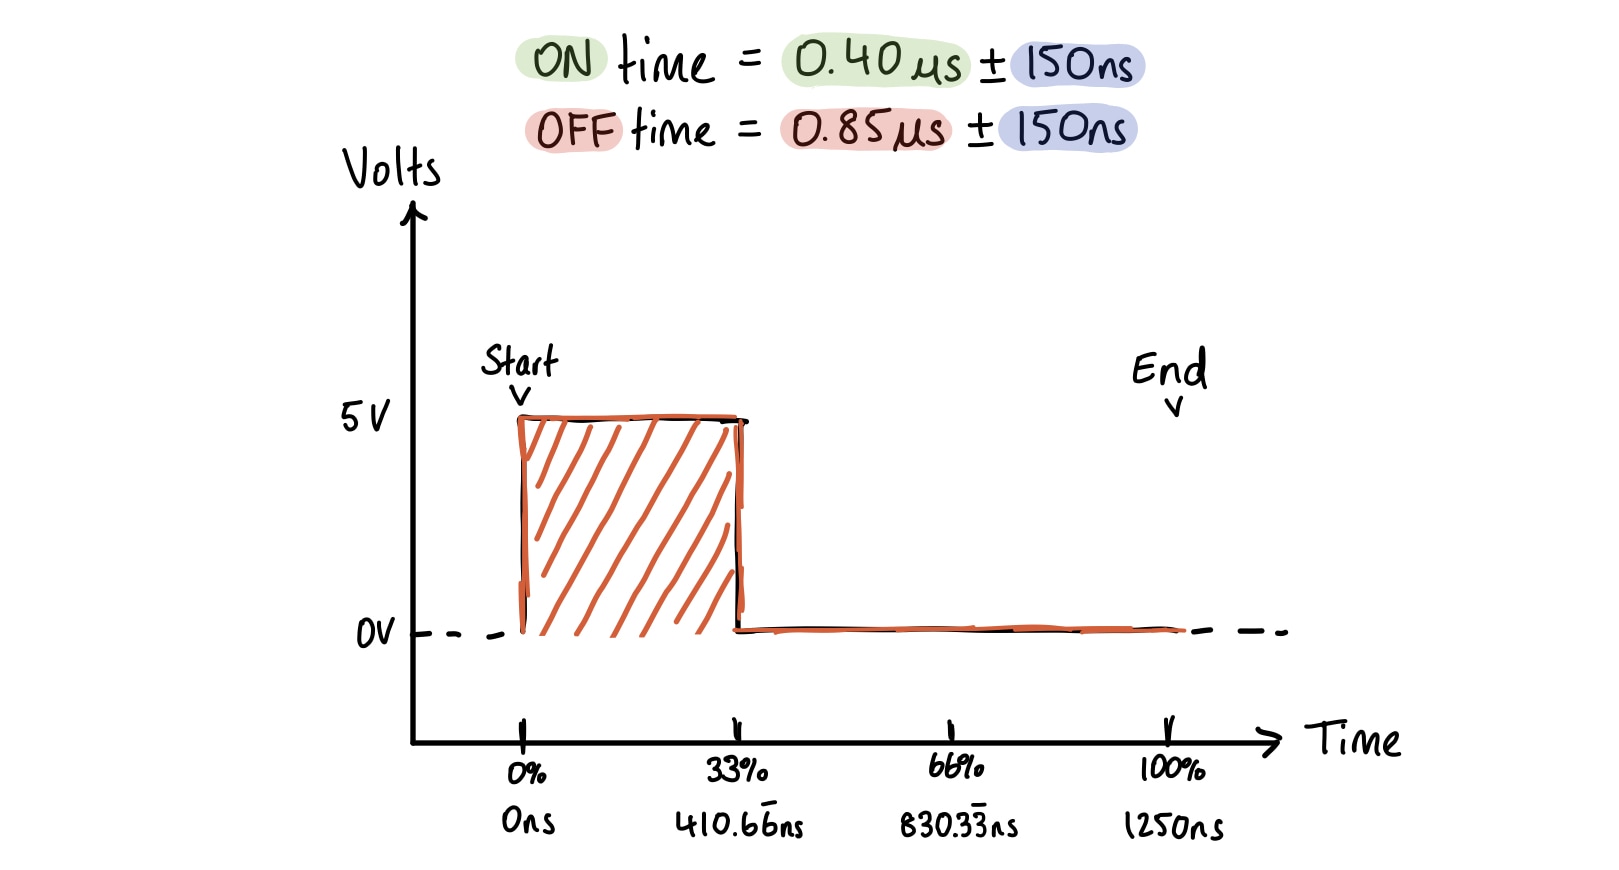 ON time = 0.40 µs ± 150ns
OFF time = 0.85 µs ± 150ns
Volts
Start
End
5V
0V
Time
0% 33% 66% 100%
0ns 410.66̅ns 830.33̅ns 1250ns